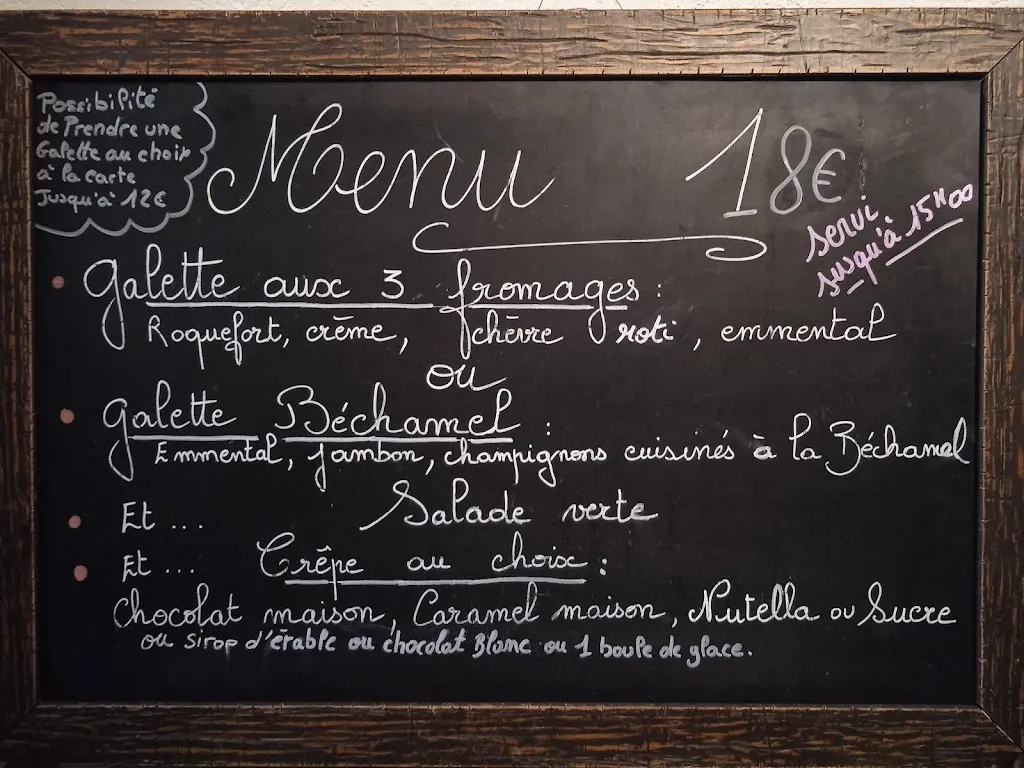 Possibilité
de Prendre une
Galette au choix
à la carte
Jusqu'à 12€
Menu 18€
servi
jusqu'à 15H00
Galette aux 3 fromages :
Roquefort, crême, chèvre roti, emmental
ou
Galette Béchamel :
Emmental, jambon, champignons cuisinés à la Béchamel
Et ... Salade verte
Et ... Crêpe au choix :
Chocolat maison, Caramel maison, Nutella ou Sucre
ou sirop d'érable ou chocolat Blanc ou 1 boule de glace.